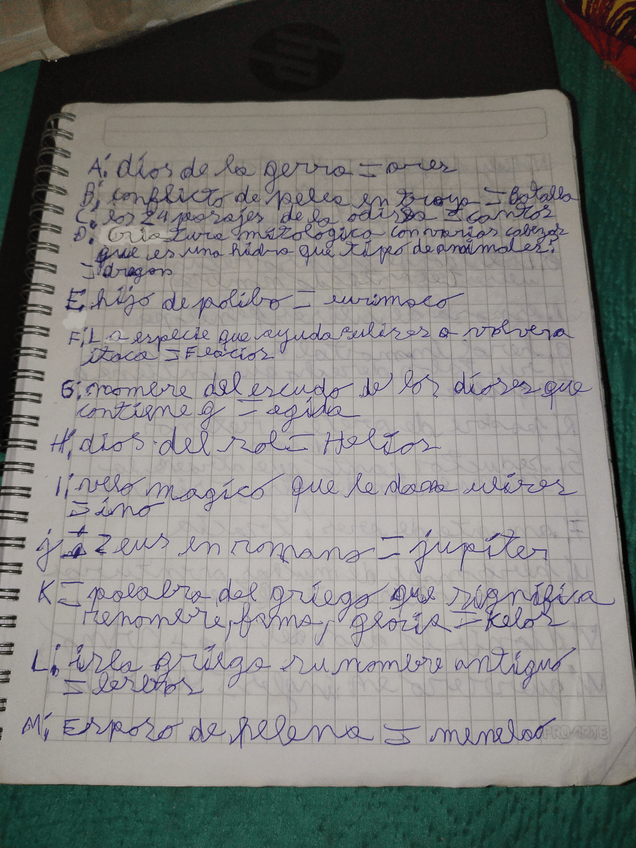 hp
A: dios de la gerra = ares
B: conflicto de pelea en troya = Batalla
C: los 24 pasajes de la odisea = cantos
D: Criatura mitologica con varias cabezas
que es una hidra que tipo de animales:
= dragon
E: hijo de polibo = eurimaco
F: La especie que ayuda a ulises a volver a
itaca = Feacios
G: nombre del escudo de los dioses que
contiene g = egida
H: dios del sol = Helios
I: velo magico que le da a ulises
= ino
j: Zeus en romano = jupiter
K = palabra del griego que significa
renombre, fama, gloria = Kelos
L: isla griega su nombre antiguo
= lesbos
M: Esposo de helena = menelao
PROARTE